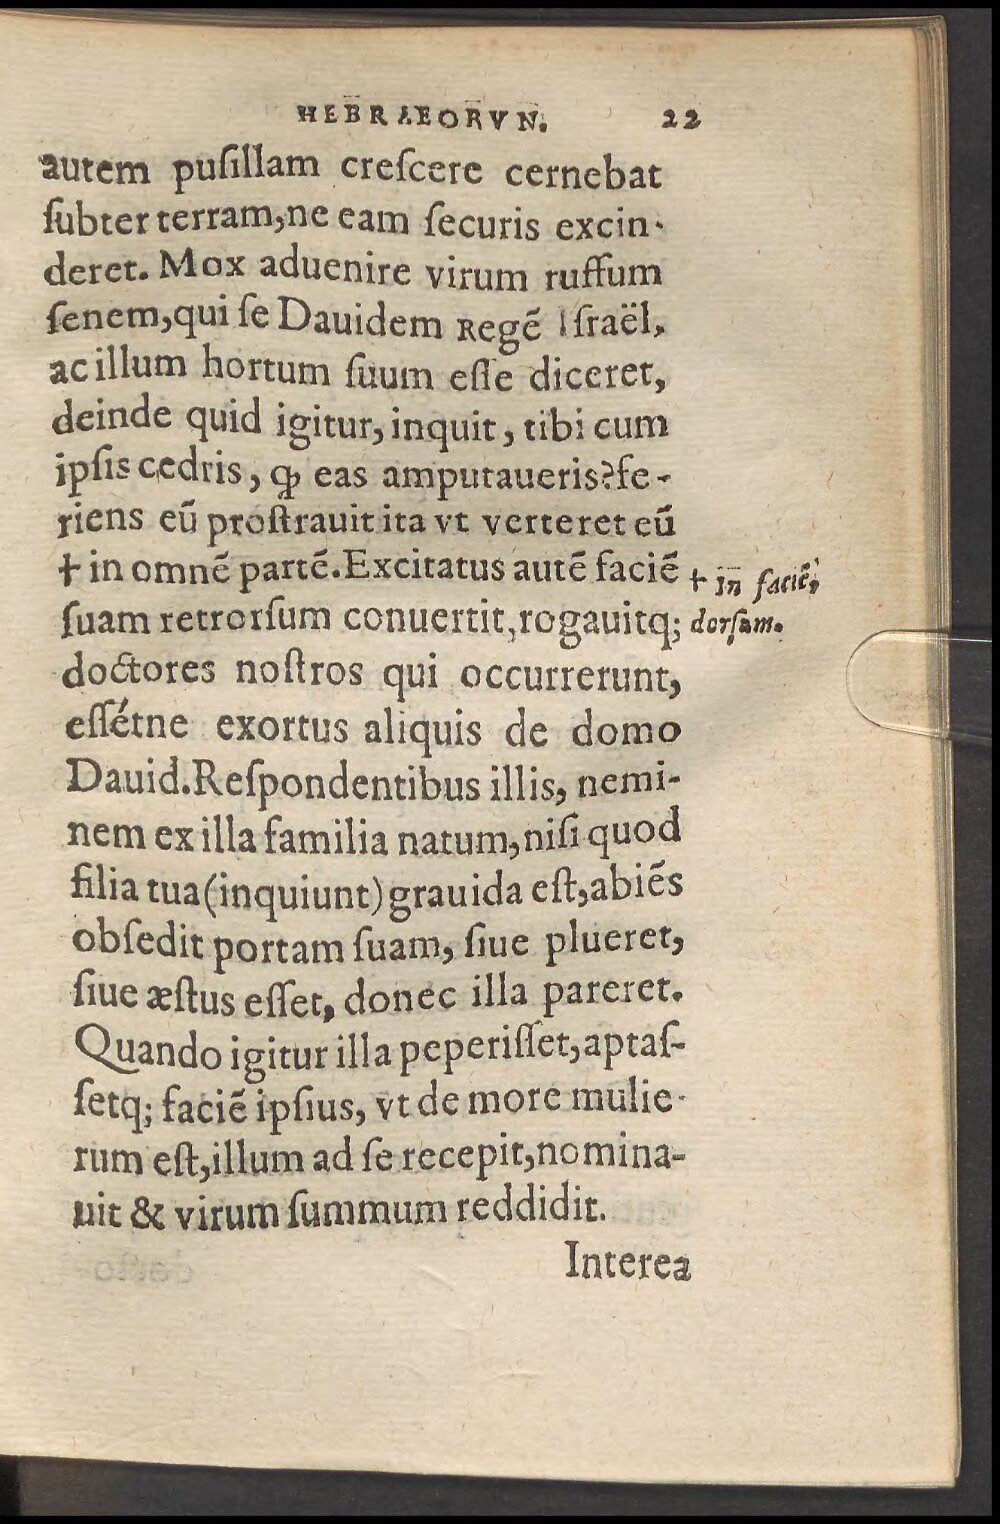 HEBRAEORVN. 22
autem puſillam creſcere cernebat
ſubter terram, ne eam ſecuris excin-
deret. Mox aduenire virum ruffum
ſenem, qui ſe Dauidem Regē Iſraël,
ac illum hortum ſuum eſſe diceret,
deinde quid igitur, inquit, tibi cum
ipſis cedris, ꝙ eas amputaueris? fe-
riens eū proſtrauit ita vt verteret eū
† in omnē partē. Excitatus autē faciē
ſuam retrorſum conuertit, rogauitq;
doctores noſtros qui occurrerunt,
eſſétne exortus aliquis de domo
Dauid. Reſpondentibus illis, nemi-
nem ex illa familia natum, niſi quod
filia tua (inquiunt) grauida eſt, abiēs
obſedit portam ſuam, ſiue plueret,
ſiue æſtus eſſet, donec illa pareret.
Quando igitur illa peperiſſet, aptaſ-
ſetq; faciē ipſius, vt de more mulie-
rum eſt, illum ad ſe recepit, nomina-
uit & virum ſummum reddidit.
Interea
† in faciē,
dorſum.